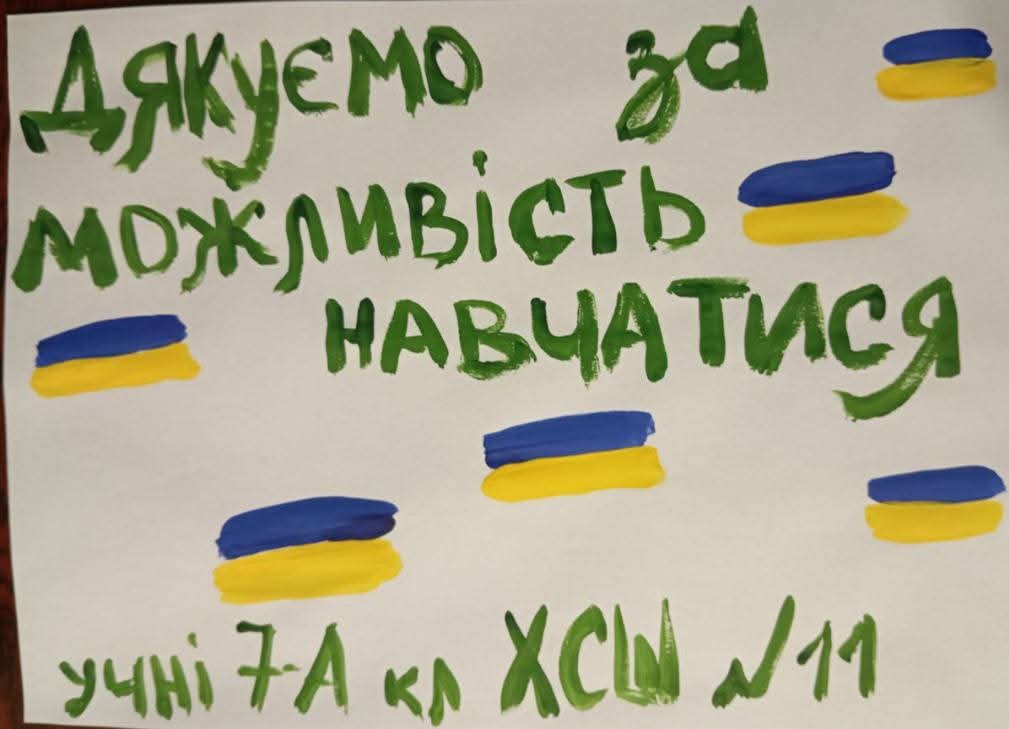 Дякуємо за
можливість
навчатися
учні 7-А кл ХСШ №11